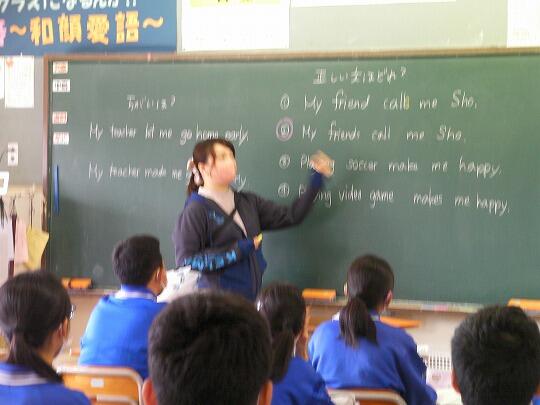 クラスになるんだ!!
～和顔愛語～
ちがいは?
My teacher let me go home early.
My teacher made me
正しい文はどれ?
① My friend call me Sho.
② My friends call me Sho.
③ soccer makes me happy.
④ video game makes me happy.